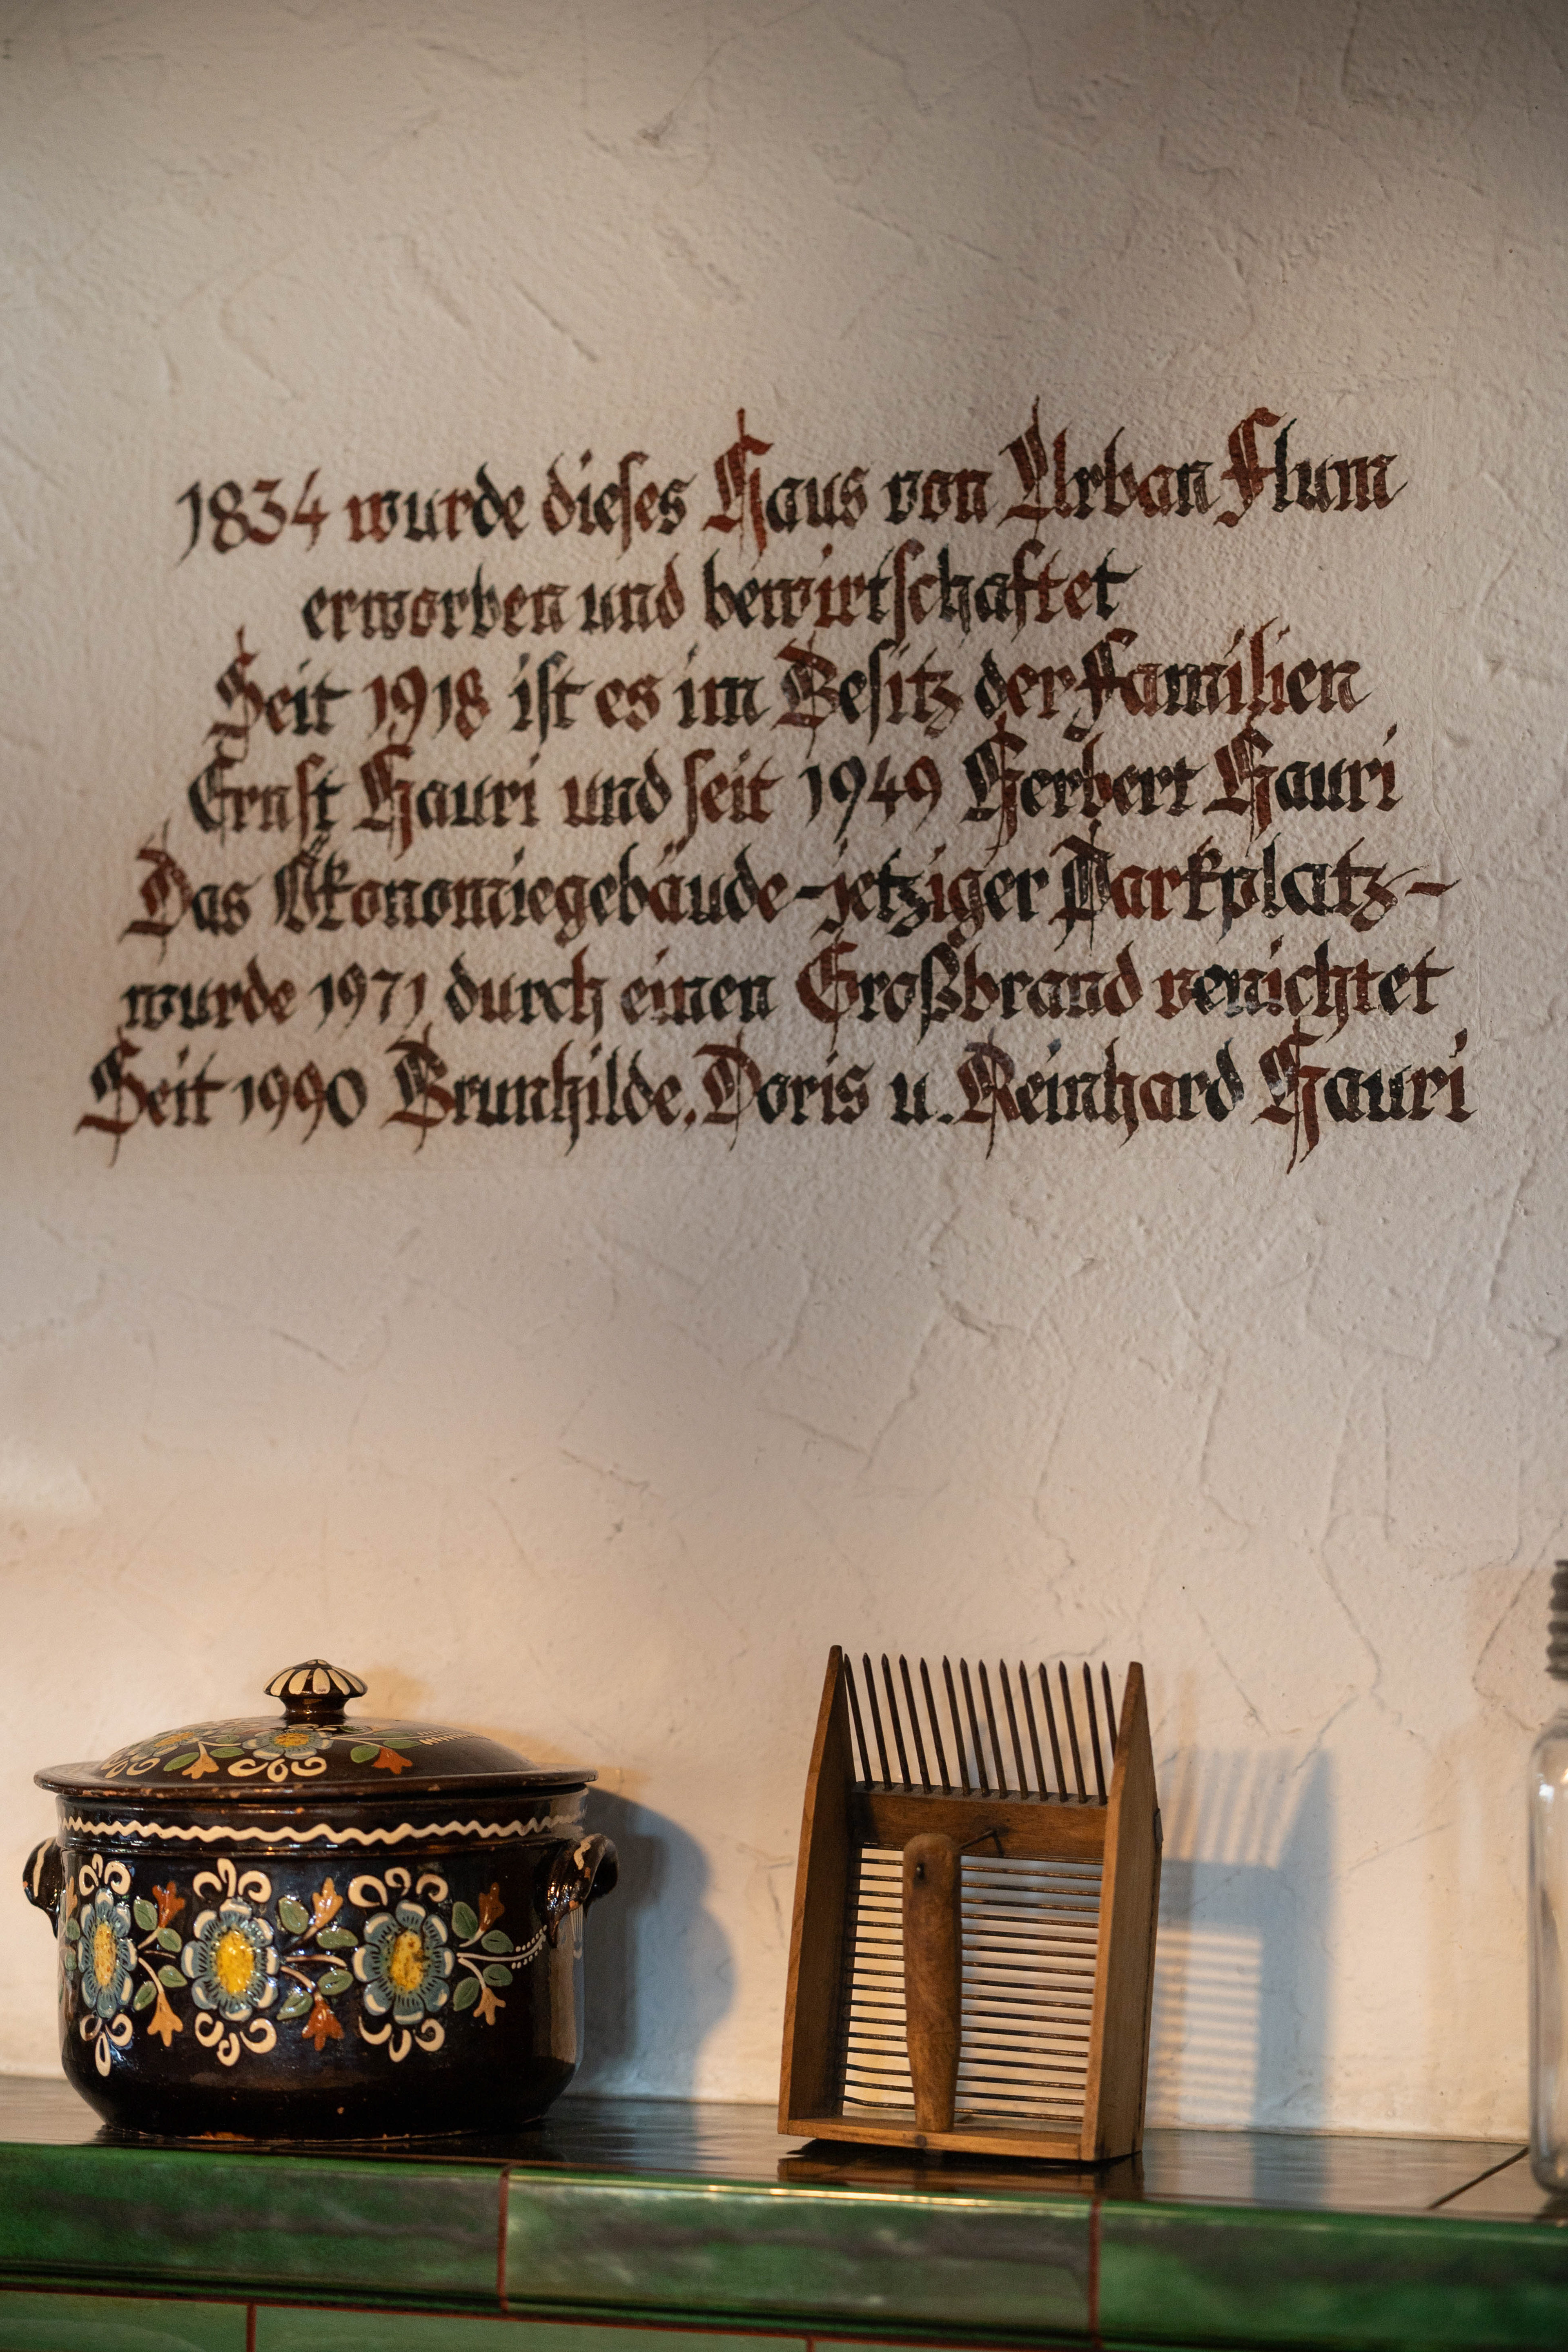 1834 wurde dieses Haus von Urban Flum
erworben und bewirtschaftet
Seit 1918 ist es im Besitz der Familien
Ernst Hauri und seit 1949 Herbert Hauri
Das Ökonomiegebäude - jetziger Parkplatz -
wurde 1971 durch einen Großbrand vernichtet
Seit 1990 Brunhilde, Doris u. Reinhard Hauri